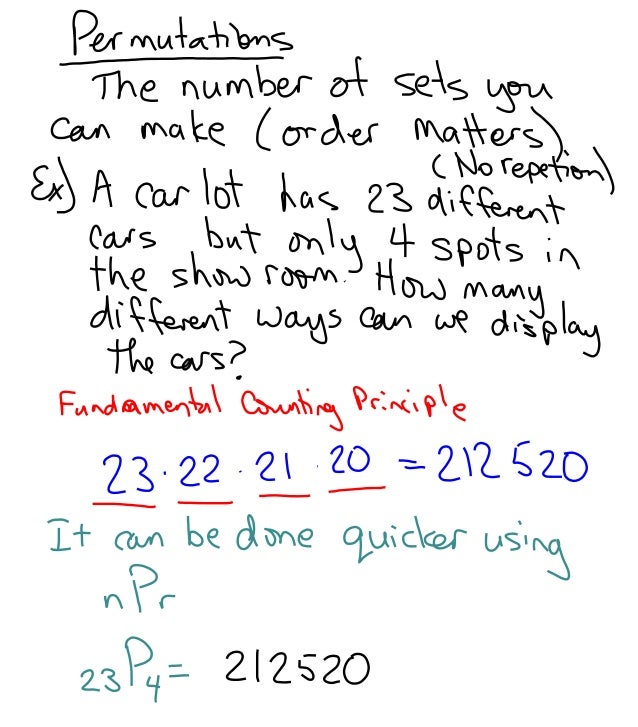 Permutations
The number of sets you
can make (order matters)
(No repetion)
Ex) A car lot has 23 different
cars but only 4 spots in
the show room. How many
different ways can we display
the cars?
Fundamental Counting Principle
23 · 22 · 21 · 20 = 212520
It can be done quicker using
nPr
23P4 = 212520